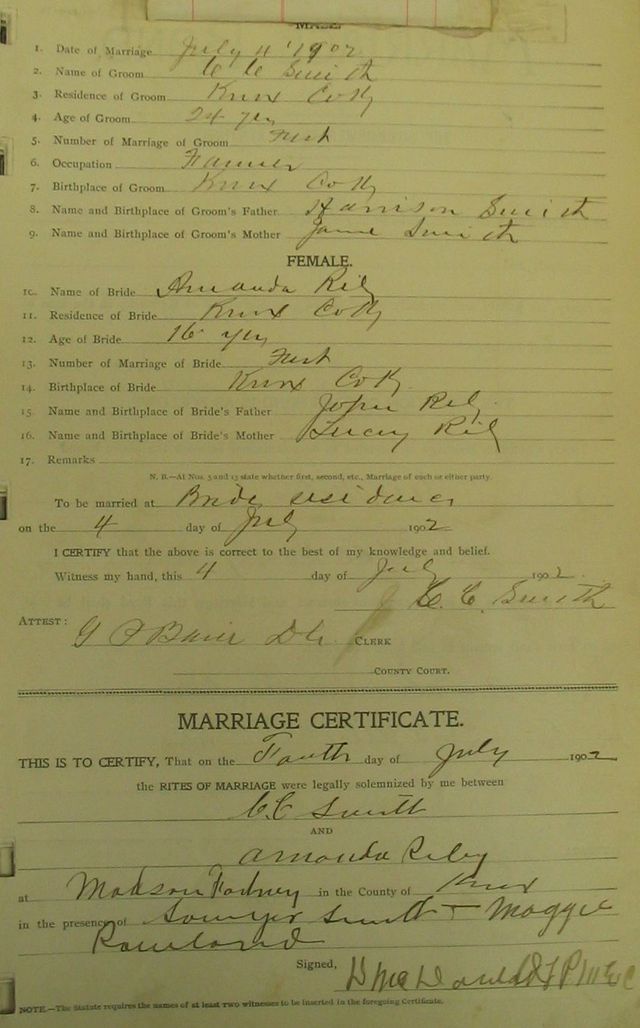 MALE
1. Date of Marriage July 4 1902
2. Name of Groom C C Smith
3. Residence of Groom Knox Co Ky
4. Age of Groom 24 yrs
5. Number of Marriage of Groom First
6. Occupation Farmer
7. Birthplace of Groom Knox Co Ky
8. Name and Birthplace of Groom's Father Harrison Smith
9. Name and Birthplace of Groom's Mother Jane Smith
FEMALE.
10. Name of Bride Amanda Rily
11. Residence of Bride Knox Co Ky
12. Age of Bride 16 yrs
13. Number of Marriage of Bride First
14. Birthplace of Bride Knox Co Ky
15. Name and Birthplace of Bride's Father John Rily
16. Name and Birthplace of Bride's Mother Lucy Rily
17. Remarks
N. B.—At Nos. 5 and 13 state whether first, second, etc., Marriage of each or either party.
To be married at Brides residence
on the 4 day of July 1902
I CERTIFY that the above is correct to the best of my knowledge and belief.
Witness my hand, this 4 day of July 1902.
C. C. Smith
ATTEST:
CLERK
COUNTY COURT.
MARRIAGE CERTIFICATE.
THIS IS TO CERTIFY, That on the Fourth day of July 1902
the RITES OF MARRIAGE were legally solemnized by me between
C.C Smith
AND
Amanda Riley
at in the County of Knox
in the presence of Sawyer Smith + Maggie
Rowland
Signed,
NOTE.—The Statute requires the names of at least two witnesses to be inserted in the foregoing Certificate.